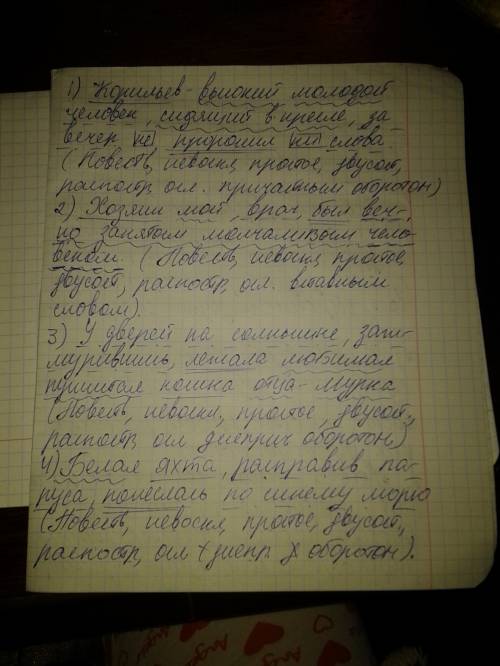 1) Корильев - высокий молодой
человек, сидящий в кресле, за
вечер не проронил ни слова
(Повеств, невоскл, простое, двусост,
распостр, осл. причастным оборотом)
2) Хозяин мой, врач, был веч-
но занятым молчаливым чело-
веком. (Повеств, невоскл, простое,
двусост, распостр, осл. вставным
словом).
3) У дверей на солнышке, заж-
мурившись, лежала любимая
пушистая кошка отца - Мурка
(Повеств, невоскл, простое, двусост,
распостр, осл дееприч оборотом)
4) Белая яхта, расправив па-
руса, понеслась по синему морю
(Повеств, невоскл, простое, двусост,
распостр, осл (деепр.) оборотом).